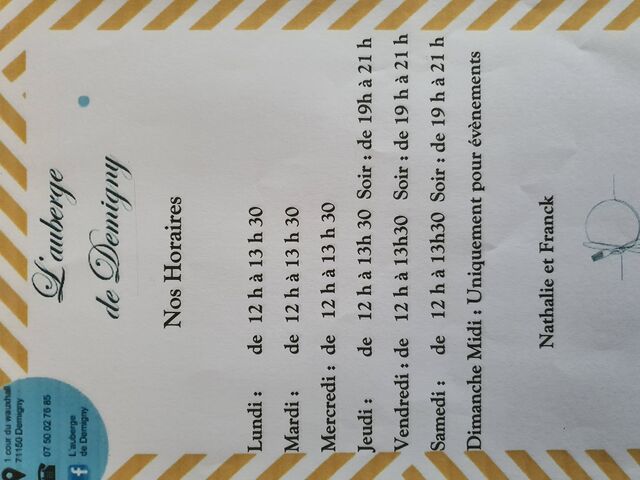 1 cour du wauxhall
71150 Demigny
07 50 02 76 85
L'auberge
de Demigny
L'auberge
de Demigny
Nos Horaires
Lundi : de 12 h à 13 h 30
Mardi : de 12 h à 13 h 30
Mercredi : de 12 h à 13 h 30
Jeudi : de 12 h à 13h 30 Soir : de 19h à 21 h
Vendredi : de 12 h à 13h30 Soir : de 19 h à 21 h
Samedi : de 12 h à 13h30 Soir : de 19 h à 21 h
Dimanche Midi : Uniquement pour évènements
Nathalie et Franck